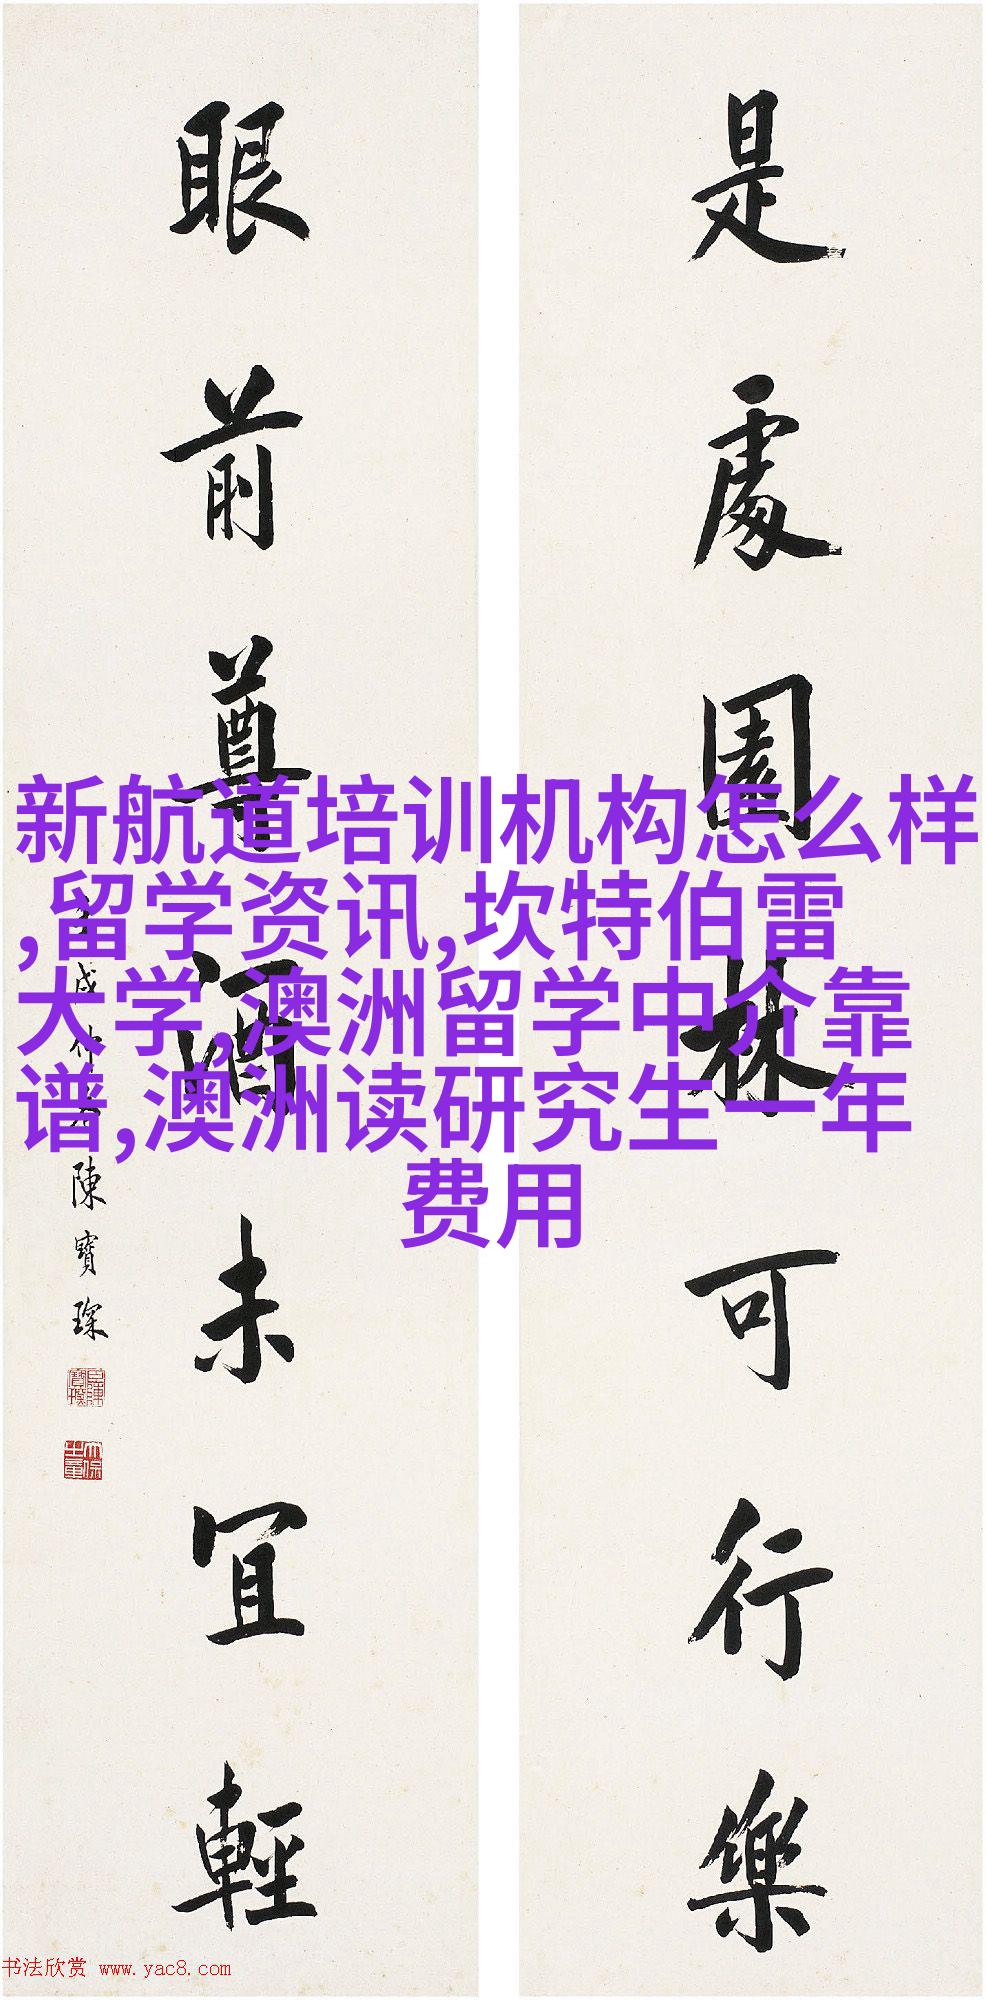 是處園林可行樂
眼前尊酒未宜輕
壬戌仲春陳寶琛
新航道培训机构怎么样
,留学资讯,坎特伯雷
大学,澳洲留学中介靠
谱,澳洲读研究生一年
费用
书法欣赏 www.yac8.com